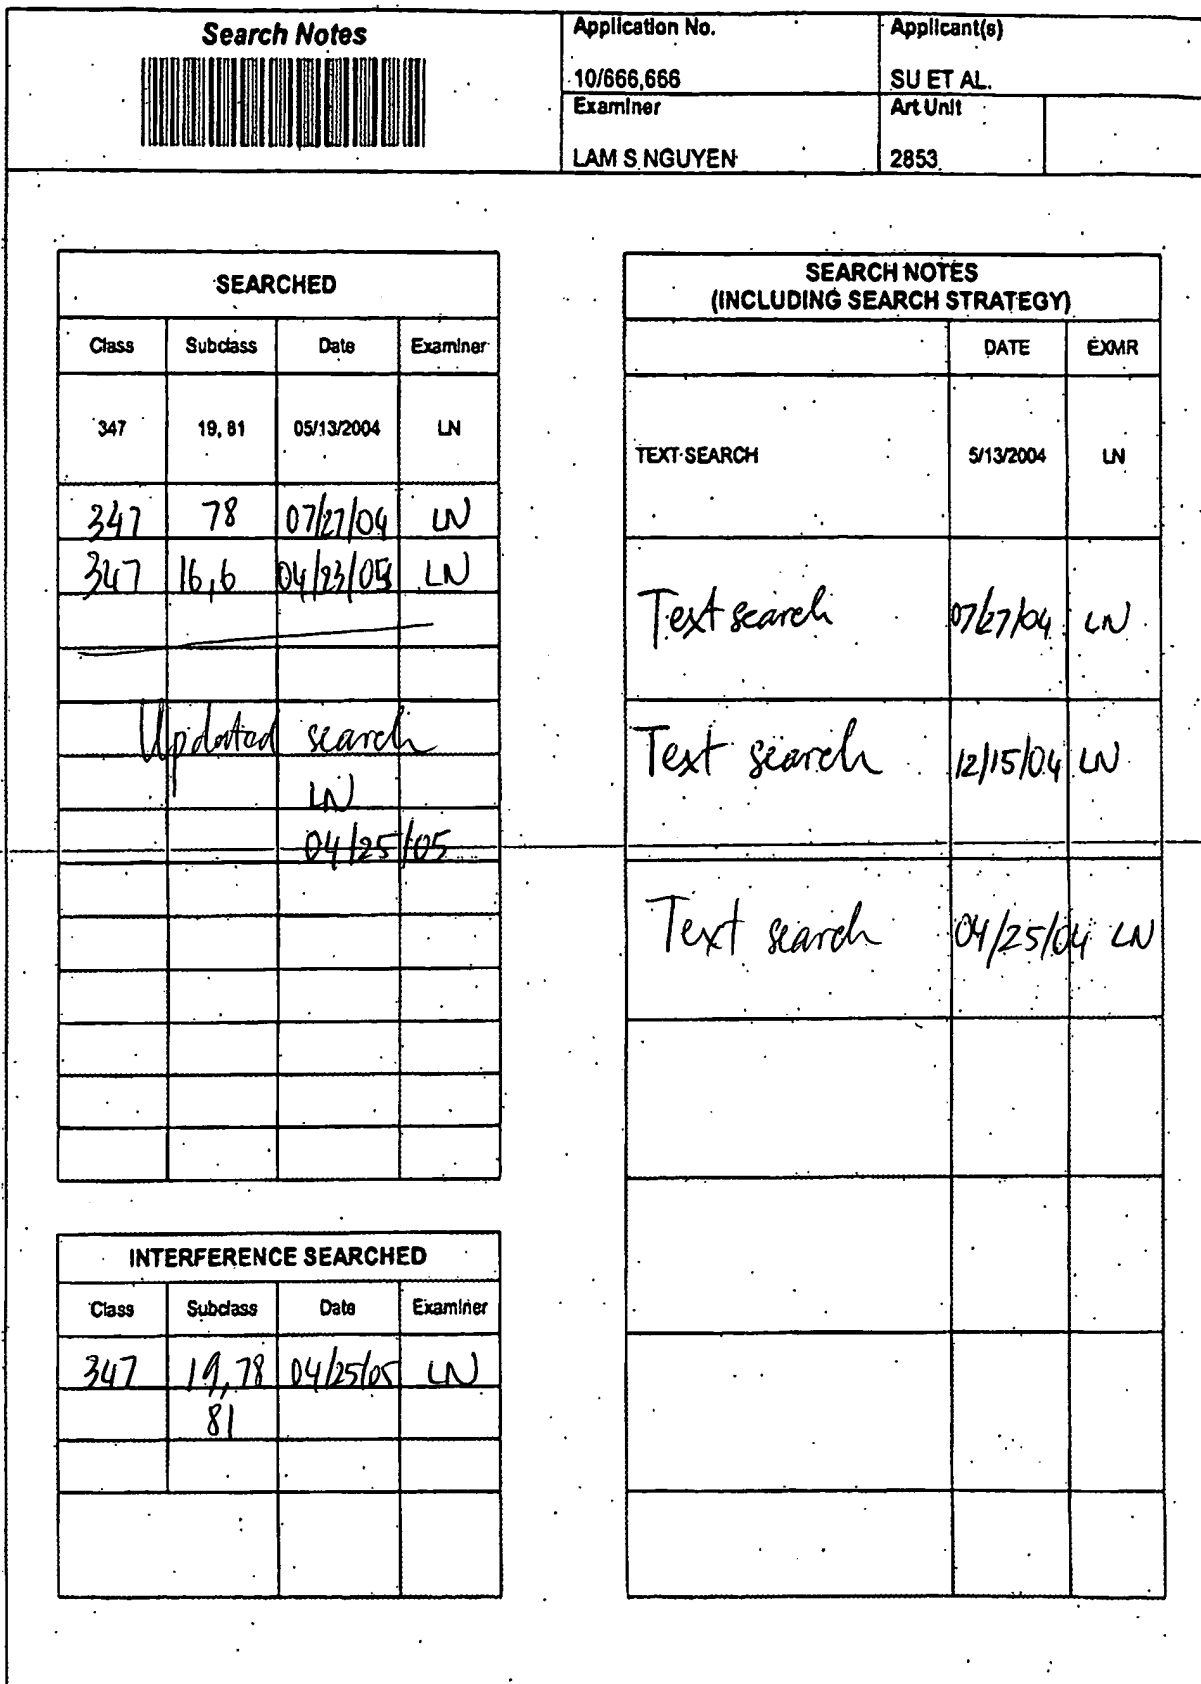 Search Notes
Application No.
Applicant(s)
10/666,666
SU ET AL.
Examiner
Art Unit
LAM S NGUYEN
2853
SEARCHED
Class Subclass Date Examiner
347 19, 81 05/13/2004 LN
347 78 07/27/04 LN
347 16,6 04/23/05 LN
Updated search
LN
04/25/05
INTERFERENCE SEARCHED
Class Subclass Date Examiner
347 19,78 04/25/05 LN
81
SEARCH NOTES
(INCLUDING SEARCH STRATEGY)
DATE EXMR
TEXT SEARCH 5/13/2004 LN
Text search 07/27/04 LN
Text search 12/15/04 LN
Text search 04/25/04 LN